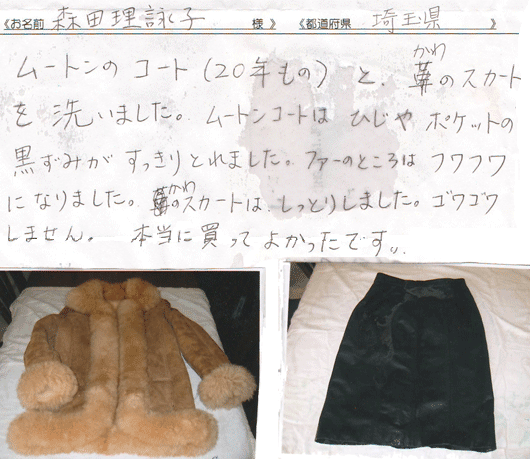 《お名前 森田理詠子 様》 《都道府県 埼玉県 》
ムートンのコート（20年もの）と、革のスカート
かわ
を洗いました。ムートンコートは ひじや ポケットの
黒ずみが すっきりとれました。ファーのところは フワフワ
になりました。革のスカートは、しっとりしました。ゴワゴワ
かわ
しません。 本当に買って よかったです。